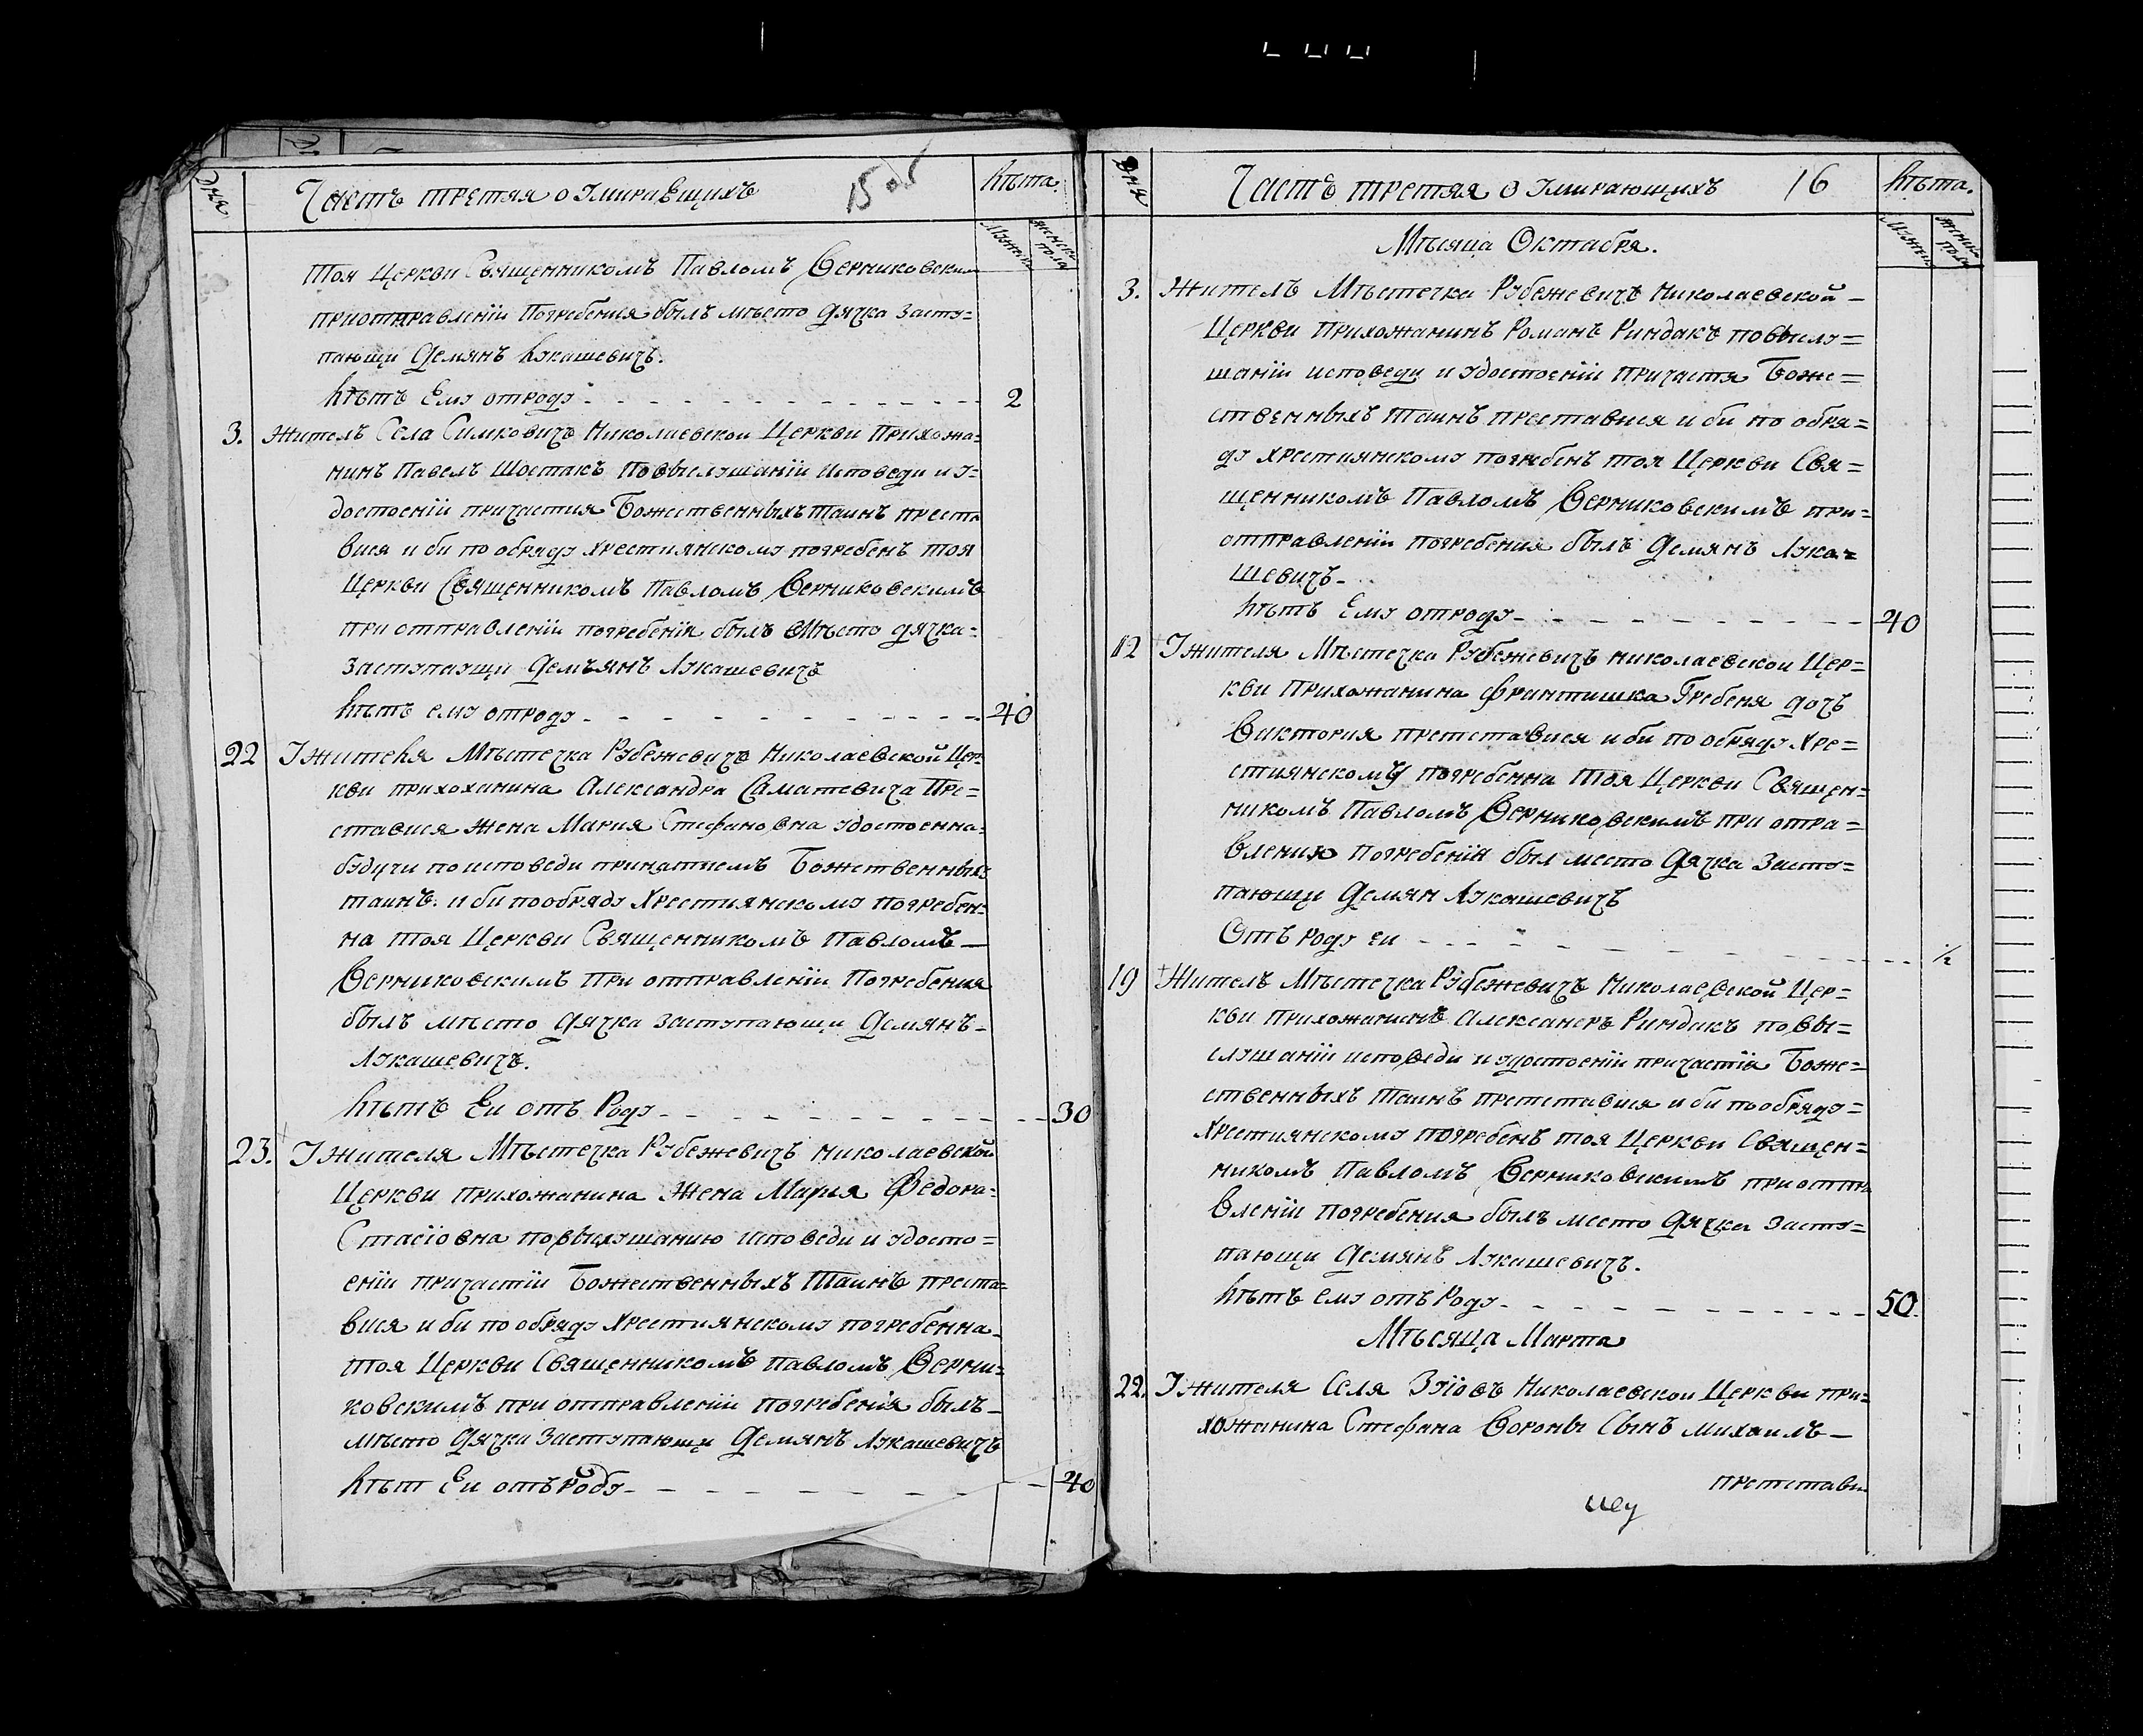 Дня
Часть третяя о Умирающихъ
15 об
Лѣта.
Мужеска
женска пола
тоя Церкви Священникомъ Павломъ Верниковским
приотправленіи Погребения былъ мѣсто дячка засту=
пающи Демянъ Лукашевичъ.
Лѣтъ Ему отроду - - - 2
3. Жителъ Села Симковичъ Николаевскои Церкви Прихожа=
нинъ Павелъ Шостакъ повыслушаніи исповеди и у=
достоеніи причастия Божественныхъ таинъ преста
вися и би по обряду хрестиянскому погребенъ тоя
Церкви Священникомъ Павломъ Верниковскимъ
при отправленіи погребенія былъ вмѣсто дячка=
Заступаущи Демъянъ Лукашевичъ
Лѣтъ ему отроду - - - 40
22 Ужителя Мѣстечка Рубежевичъ Николаевской Цер=
кви прихожанина Александра Саматевича Пре=
ставися жена Мария Стефановна удостоенна=
будучи по исповеди принятиемъ Божественныхъ
таинъ. и би пообряду Хрестиянскому погребен=
на тоя Церкви Священникомъ Павломъ —
Верниковскимъ при отправленіи Погребения
былъ мѣсто дячка заступающи Демянъ -
Лукашевичъ.
Лѣтъ Еи отъ Роду - - - 30
23. Ужителя Мѣстечка Рубежевичъ николаевской
Церкви прихожанина Жена Мария Федора=
Стасіовна повыслушанию исповеди и удосто=
еніи причастіи Божественныхъ Таинъ преста=
вися и би по обряду Хрестиянскому погребенна
тоя Церкви Священникомъ Павломъ Верни=
ковскимъ при отправленіи погребенія былъ -
мѣсто дячка Заступающи Демянъ Лукашевичъ
Лѣт Еи отъ Роду - - - 40
Дня
Часть третяя о Умирающихъ
16
Лѣта.
Мужеска
женска пола
Мѣсяца Октабря.
3. Жителъ Мѣстечка Рубежевичъ Николаевской —
Церкви Прихожанинъ Романъ Риндакъ повыслу=
шаніи исповеди и удостоеніи Причастя Боже=
ственныхъ таинъ преставися и би по обря=
ду хрестиянскому погребенъ тоя Церкви Свя=
щенникомъ Павломъ Верниковскимъ при=
отправленіи погребения былъ Демянъ Лука=
шевичъ -
Лѣтъ Ему отроду - - - 40
12 Ужителя Мѣстечка Рубежевичъ николаевскои Цер=
кви Прихожанина Франтишка Гребеня дочъ
Виктория претставися и би по обряду Хре=
стиянскому погребенна тоя Церкви Священ=
никомъ Павломъ Верниковскимъ при отпра=
вления погребенія был место дячка засту=
пающи Демян Лукашевичъ
Отъ роду еи - - - ½
19 Жителъ Мѣстечка Рубежевичъ Николаевской Цер=
кви прихожанинъ Алексанеръ Риндакъ повы=
слушаніи исповеди и удостоеніи причастія Боже=
ственныхъ Таинъ претставися и би пообряду=
Хрестиянскому погребенъ тоя Церкви Священ=
никомъ Павломъ Верниковскимъ приотпра
вленіи погребения былъ место дячка засту=
пающи Демянъ Лукашевичъ.
Лѣтъ ему отъ Роду - - - 50.
Мѣсяца Марта
22. Ужителя Селя Зуіовъ Николаевскои Церкви при=
хожанина Стефана Вороны Сынъ михаилъ —
претстави